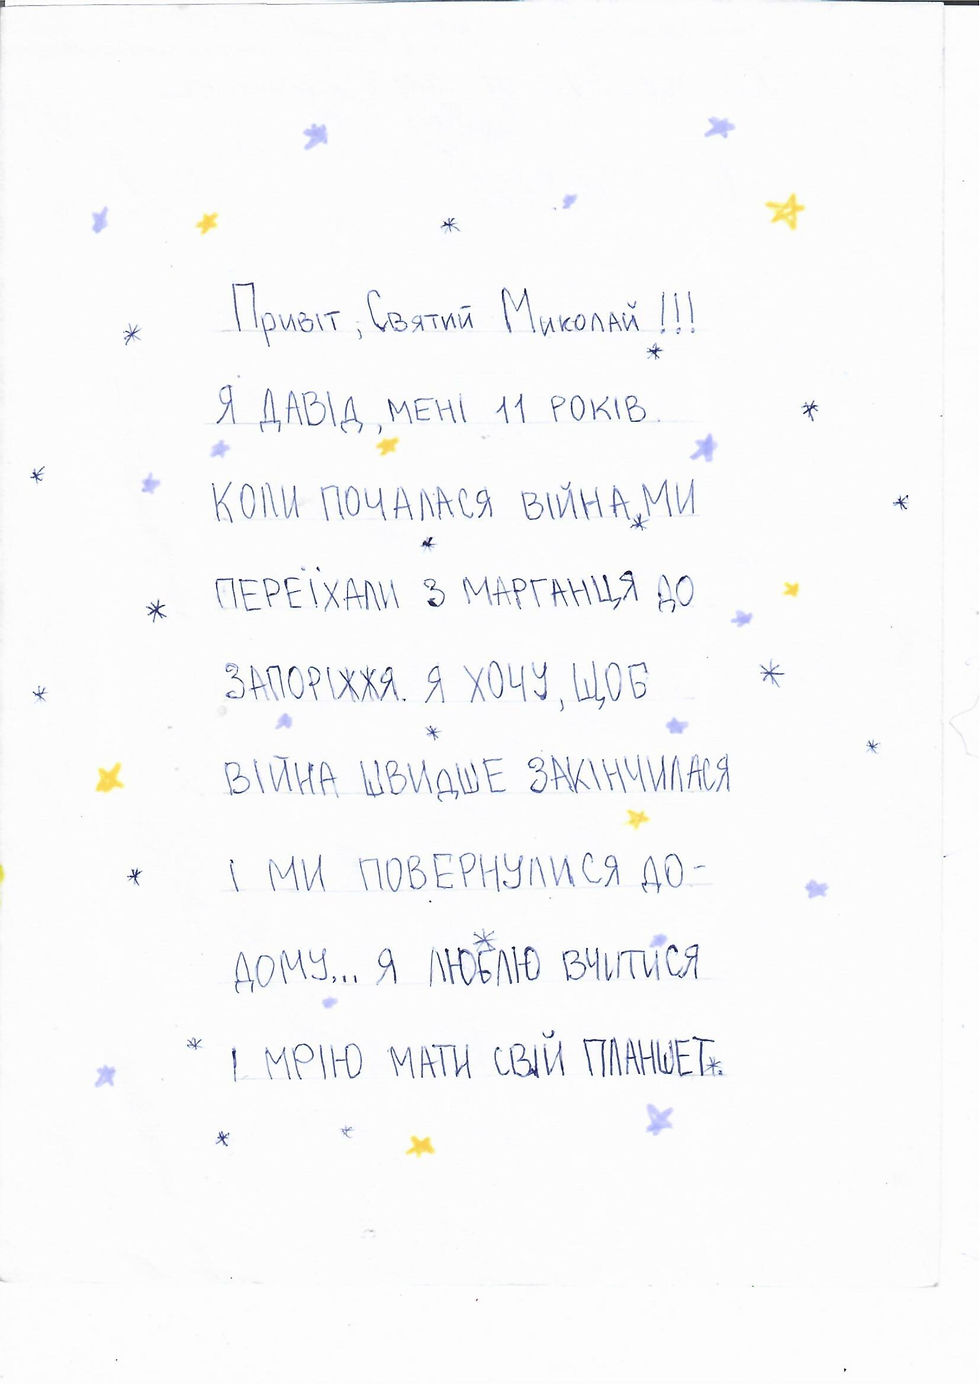 Привіт, Святий Миколай!!!
Я ДАВІД, МЕНІ 11 РОКІВ.
КОЛИ ПОЧАЛАСЯ ВІЙНА, МИ
ПЕРЕЇХАЛИ З МАРГАНЦЯ ДО
ЗАПОРІЖЖЯ. Я ХОЧУ, ЩОБ
ВІЙНА ШВИДШЕ ЗАКІНЧИЛАСЯ
І МИ ПОВЕРНУЛИСЯ ДО-
ДОМУ... Я ЛЮБЛЮ ВЧИТИСЯ
І МРІЮ МАТИ СВІЙ ПЛАНШЕТ.